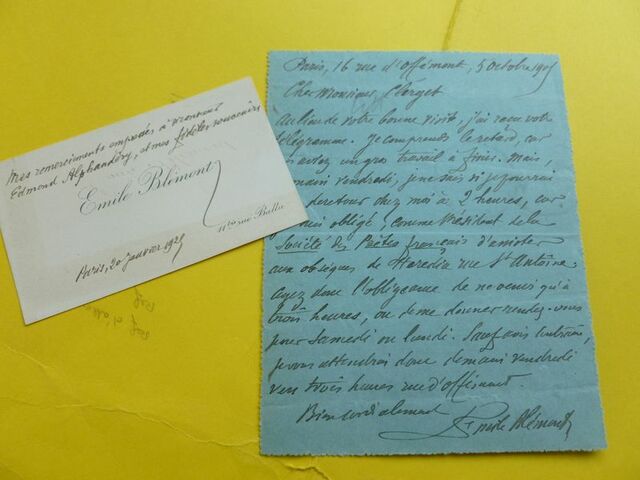 Mes remerciements empressés à Monsieur
Edmond Alphandéry, et mes fidèles souvenirs
Emile Blémont
11 bis rue Ballu
Paris, 20 janvier 192
Paris, 16 rue d'Offémont, 5 octobre 1905
Cher Monsieur Clerget
Au lieu de votre bonne visite, j'ai reçu votre
télégramme. Je comprends le retard, car
aviez un gros travail à finir. Mais,
demain vendredi, je ne sais si je pourrai
de retour chez moi à 2 heures, car
obligé, comme Président de la
Société des Poètes français d'assister
aux obsèques de Heredia rue St Antoine.
ayez donc l'obligeance de ne venir qu'à
trois heures, ou de me donner rendez-vous
pour Samedi ou lundi. Sauf avis contraire,
je vous attendrai donc demain vendredi
vers trois heures rue d'Offémont.
Bien cordialement
Emile Blémont